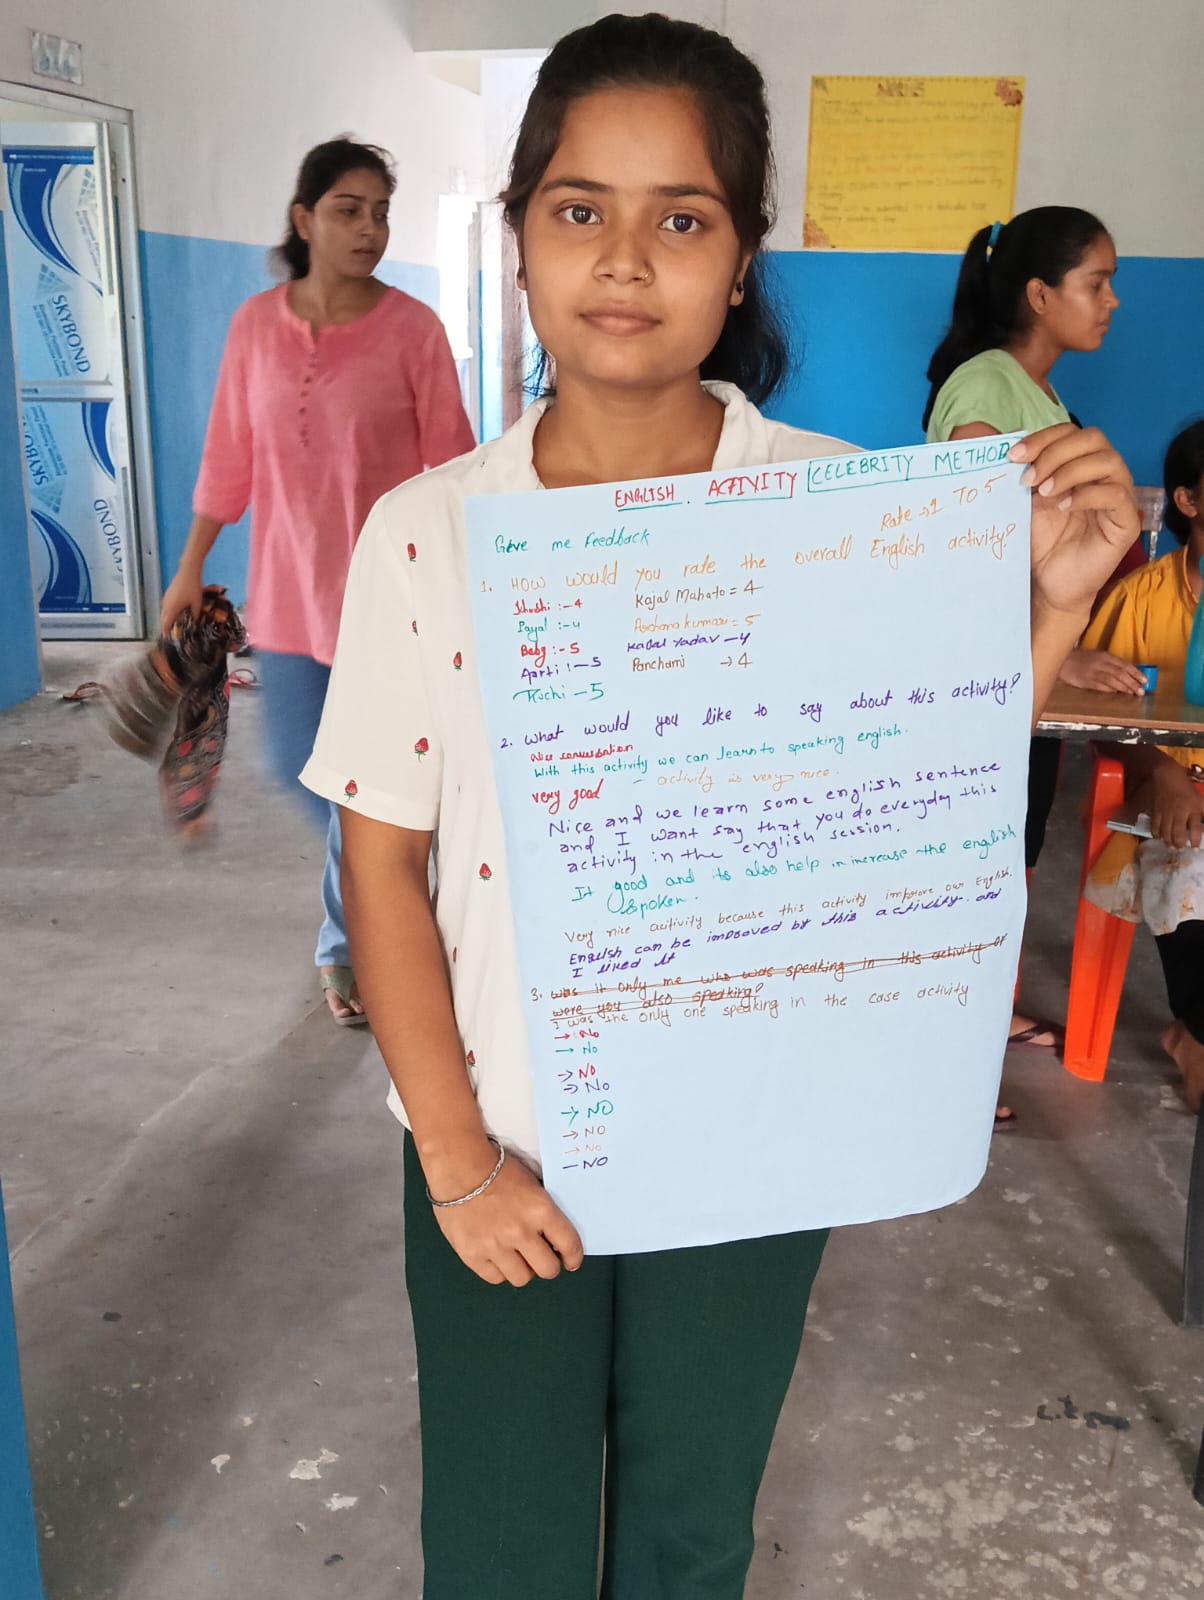 ENGLISH . ACTIVITY CELEBRITY METHOD
Rate → 1 TO 5
Give me feedback
1. HOW would you rate the overall English activity?
Khushi :- 4
Payal :- 4
Baby :- 5
Aarti :- 5
Ruchi - 5
Kajal Mahato = 4
Archana kumari = 5
Kajal Yadav - 4
Panchami → 4
2. What would you like to say about this activity?
Nice conversation
With this activity we can learn to speaking english.
very good - activity is very nice.
Nice and we learn some english sentence
and I want say that you do everyday this
activity in the english session.
It good and its also help in increase the english
spoken.
Very nice acitivity because this activity improve our English.
English can be improved by this activity. and
I liked it
3. was it only me who was speaking in this activity or
were you also speaking?
I was the only one speaking in the case activity
→ No
→ No
→ NO
→ No
→ NO
→ NO
→ NO
- NO
SKYBOND
SKYBOND
SKYBOND